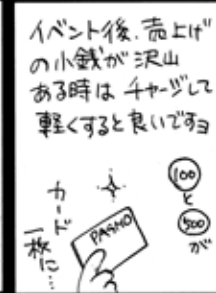 イベント後、売上げ
の小銭が沢山
ある時は チャージして
軽くすると良いですョ
100
と
500
が
カード
一枚に…
PASMO